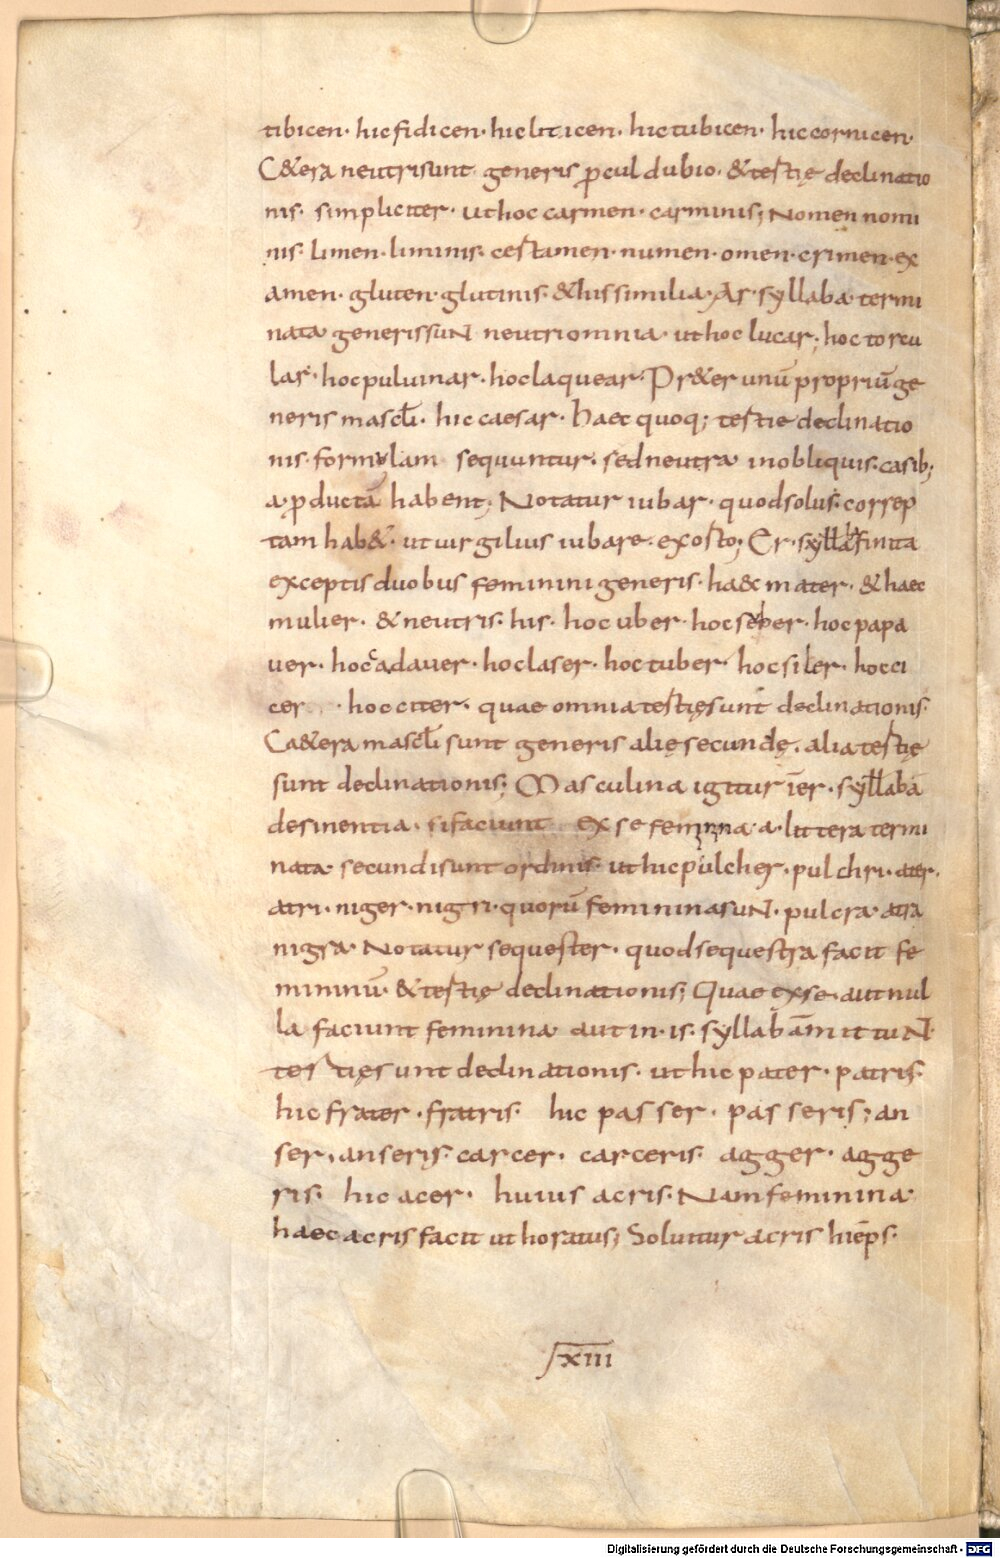 tibicen· hic fidicen· hic liticen· hic tubicen· hic cornicen·
C&era neutri sunt generis ꝓcul dubio· & testię declinatio
nis· simpliciter· ut hoc carmen· carminis; Nomen nomi
nis· limen· liminis· cestamen· numen· omen· crimen· ex
amen· gluten· glutinis· & his similia· Ar· syllaba termi
nata generis suN neutri omnia· ut hoc lucar; hoc torcu
lar· hoc puluinar· hoc laquear· Pr&er unū propriū ge
neris mascł̄i· hic caesar· haec quoq; testie declinatio
nis formulam sequuntur· sed neutra in obliquis· casib;
a· ꝓductā habent; Notatur iubar· quod solus· correp
tam hab&· ut uirgilius iubare· exosto; Er· syłła finita
exceptis duobus feminini generis· ha&c mater· & haec
mulier· & neutris· his· hoc uber· hoc seber· hoc papa
uer· hoc cadauer· hoc laser· hoc tuber· hoc siler· hoc ci
cer· hoc citer· quae omnia testię sunt declinationis·
Ca&era mascł̄i sunt generis alię secundę· alia testię
sunt declinationis; Masculina igitur īer· syłłabā
desinentia· si faciunt ex se feminina· a· littera termi
nata secundi sunt ordinis· ut hic pulcher· pulchri· ater·
atri· niger· nigri· quorū feminina suN· pulcra· atra
nigra· Notatur sequester· quod sequestra facit fe
mininū· & testię declinationis; Quae ex se· aut nul
la faciunt feminina aut in· is· syllabām ittuN·
tertię sunt declinationis· ut hic pater· patris·
hic frater· fratris· hic passer· passeris; an
ser· anseris· carcer· carceris· agger· agge
ris· hic acer· huius acris· Nam feminina·
haec acris facit ut horatius; Soluitur acris hiēps·
xiii
Digitalisierung gefördert durch die Deutsche Forschungsgemeinschaft - DFG